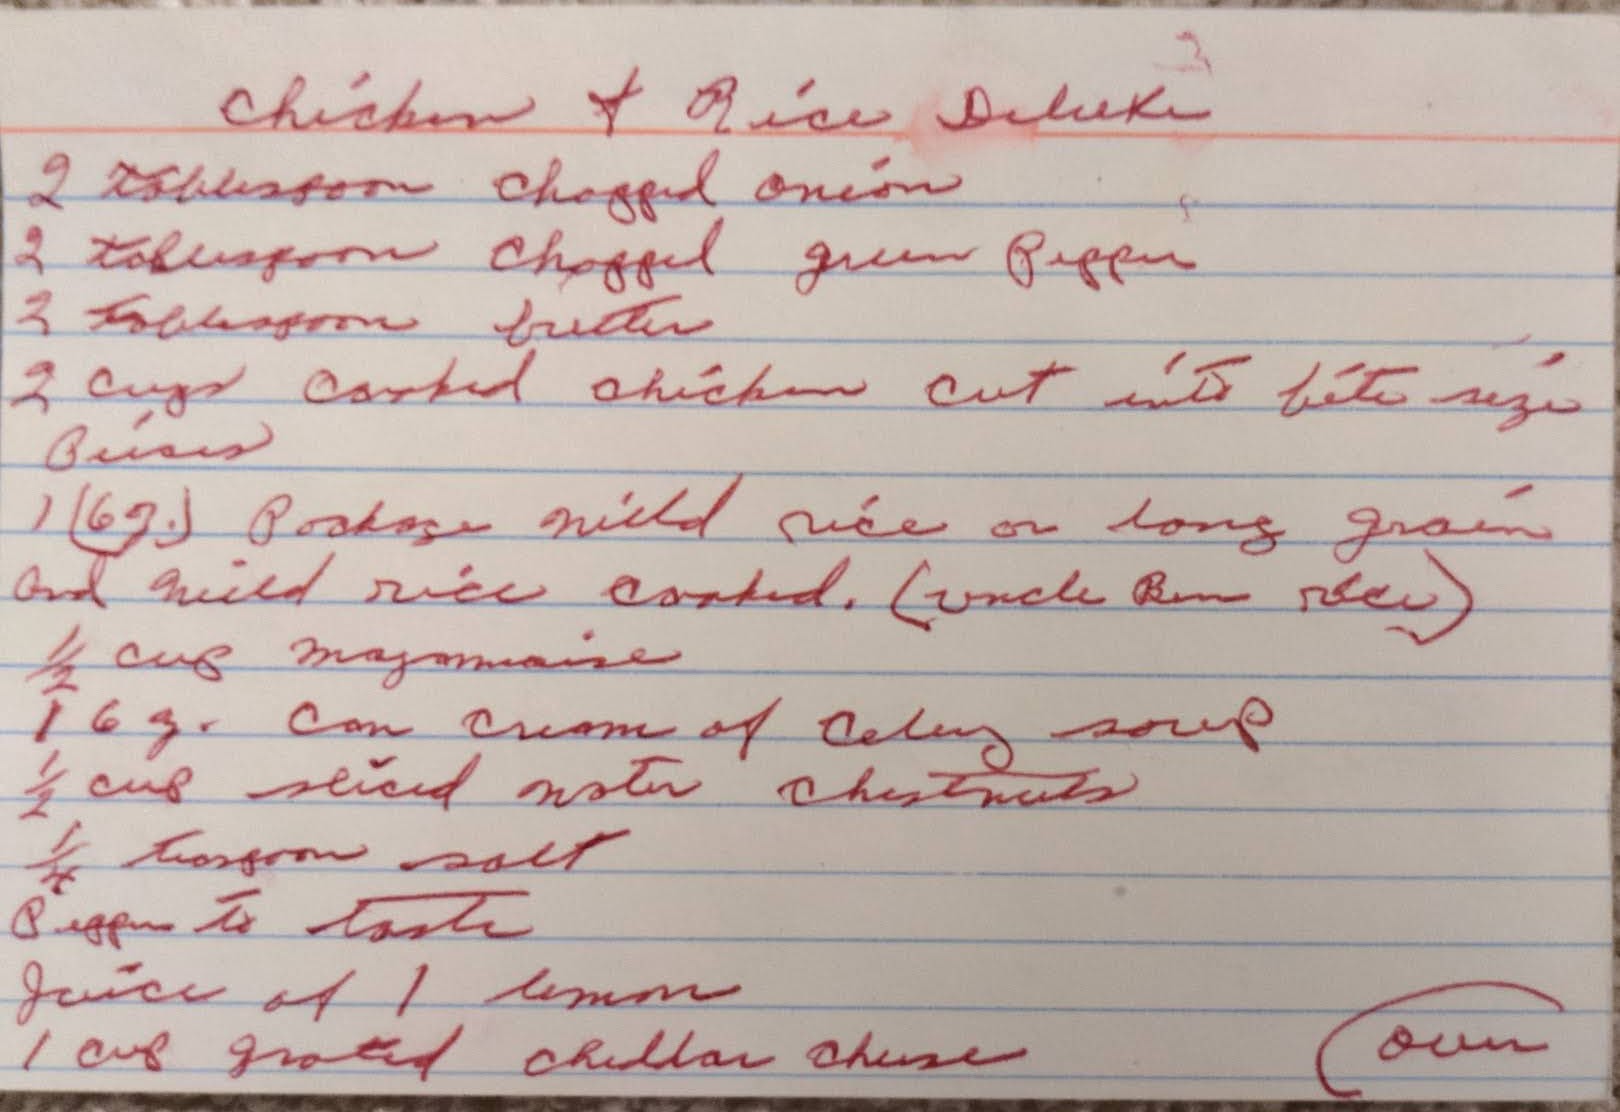 Chicken & Rice Deluxe
2 tablespoon chopped onion
2 tablespoon chopped green Pepper
2 tablespoon butter
2 cups cooked chicken cut into bite size
Pieces
1 (6 oz.) Package wild rice or long grain
and wild rice cooked. (Uncle Ben rice)
1/2 cup mayonnaise
1 6 oz. Can cream of Celery soup
1/2 cup sliced water chestnuts
1/4 teaspoon salt
Pepper to taste
Juice of 1 lemon
1 cup grated cheddar cheese
(over